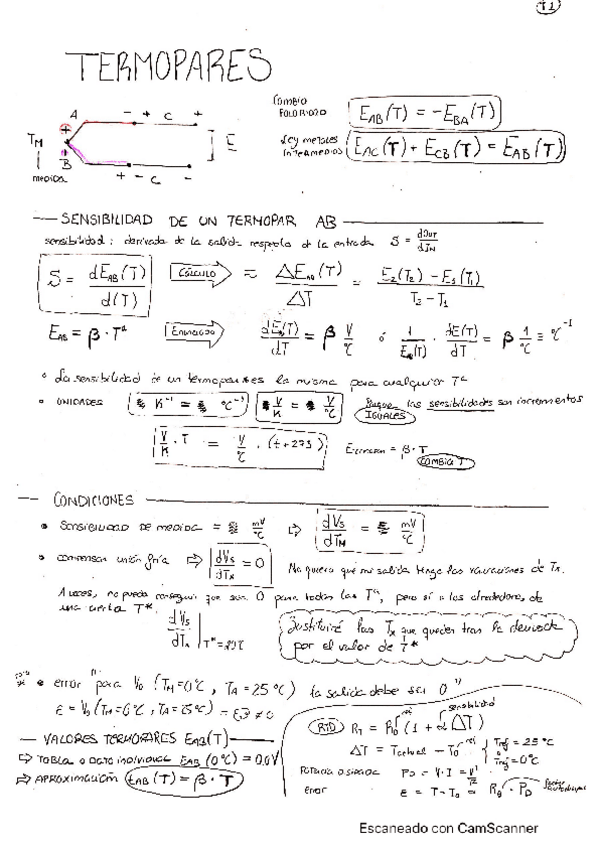 TERMOPARES
A - + C +
T_M
B + - C -
E
medida
CAMBIO POLARIDAD E_AB(T) = -E_BA(T)
Ley metales intermedios E_AC(T) + E_CB(T) = E_AB(T)
SENSIBILIDAD DE UN TERMOPAR AB
sensibilidad: derivada de la salida respecto de la entrada S = dOUT/dIN
S = dE_AB(T)/d(T) CÁLCULO ≈ ΔE_AB(T)/ΔT = E_2(T_2) - E_1(T_1)/T_2 - T_1
E_AB = β · Tª ENUNCIADO dE(T)/dT = β V/ºC ó 1/E(T) · dE(T)/dT = β 1/ºC ≡ ºC⁻¹
• La sensibilidad de un termopar es la misma para cualquier Tª
• UNIDADES K⁻¹ = ºC⁻¹ V/K = V/ºC las sensibilidades son incrementos
IGUALES
V/K · T = V/ºC · (t + 273) = β · T
CAMBIA T
CONDICIONES
• SENSIBILIDAD DE MEDIDA = mV/ºC ⇨ dVs/dT_M = mV/ºC
• compensar unión fría ⇨ dVs/dTx = 0 No quiero que mi salida tenga las variaciones de Tx.
A veces, no puedo conseguir que sea 0 para todas las Tª, pero sí a los alrededores de
una cierta T*.
dVs/dTx | T*=
Sustituiré las Tx que queden tras la derivada
por el valor de T*
• error para V_0 (T_M=0ºC, T_A=25ºC) la salida debe ser 0"
ε = V_s(T_M=0ºC, T_A=25ºC) = ≠ 0
VALORES TERMOPARES E_AB(T)
⇨ TABLA o DATO individual E_AB(0ºC) = 0.0V
⇨ APROXIMACIÓN E_AB(T) = β · T
sensibilidad
RTD R_T = R_0 (1 + α ΔT)
ΔT = Tactual - T_0 Tref = 25ºC
Tref = 0ºC
Potencia disipada P_D = V · I =
error e = T - T_0 = R_θ · P_D
Escaneado con CamScanner